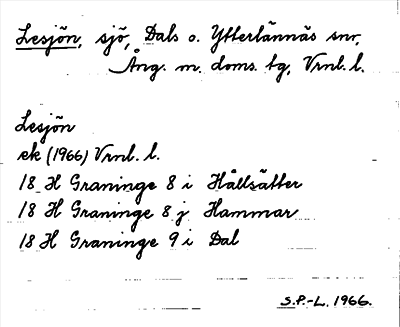 Lesjön, sjö, Dals o. Ytterlännäs snr,
Ång. m. doms. tg, Vrnl. l.
Lesjön
ek (1966) Vrnl. l.
18 H Graninge 8 i Hällsätter
18 H Graninge 8 j Hammar
18 H Graninge 9 i Dal
S.P.-L. 1966.